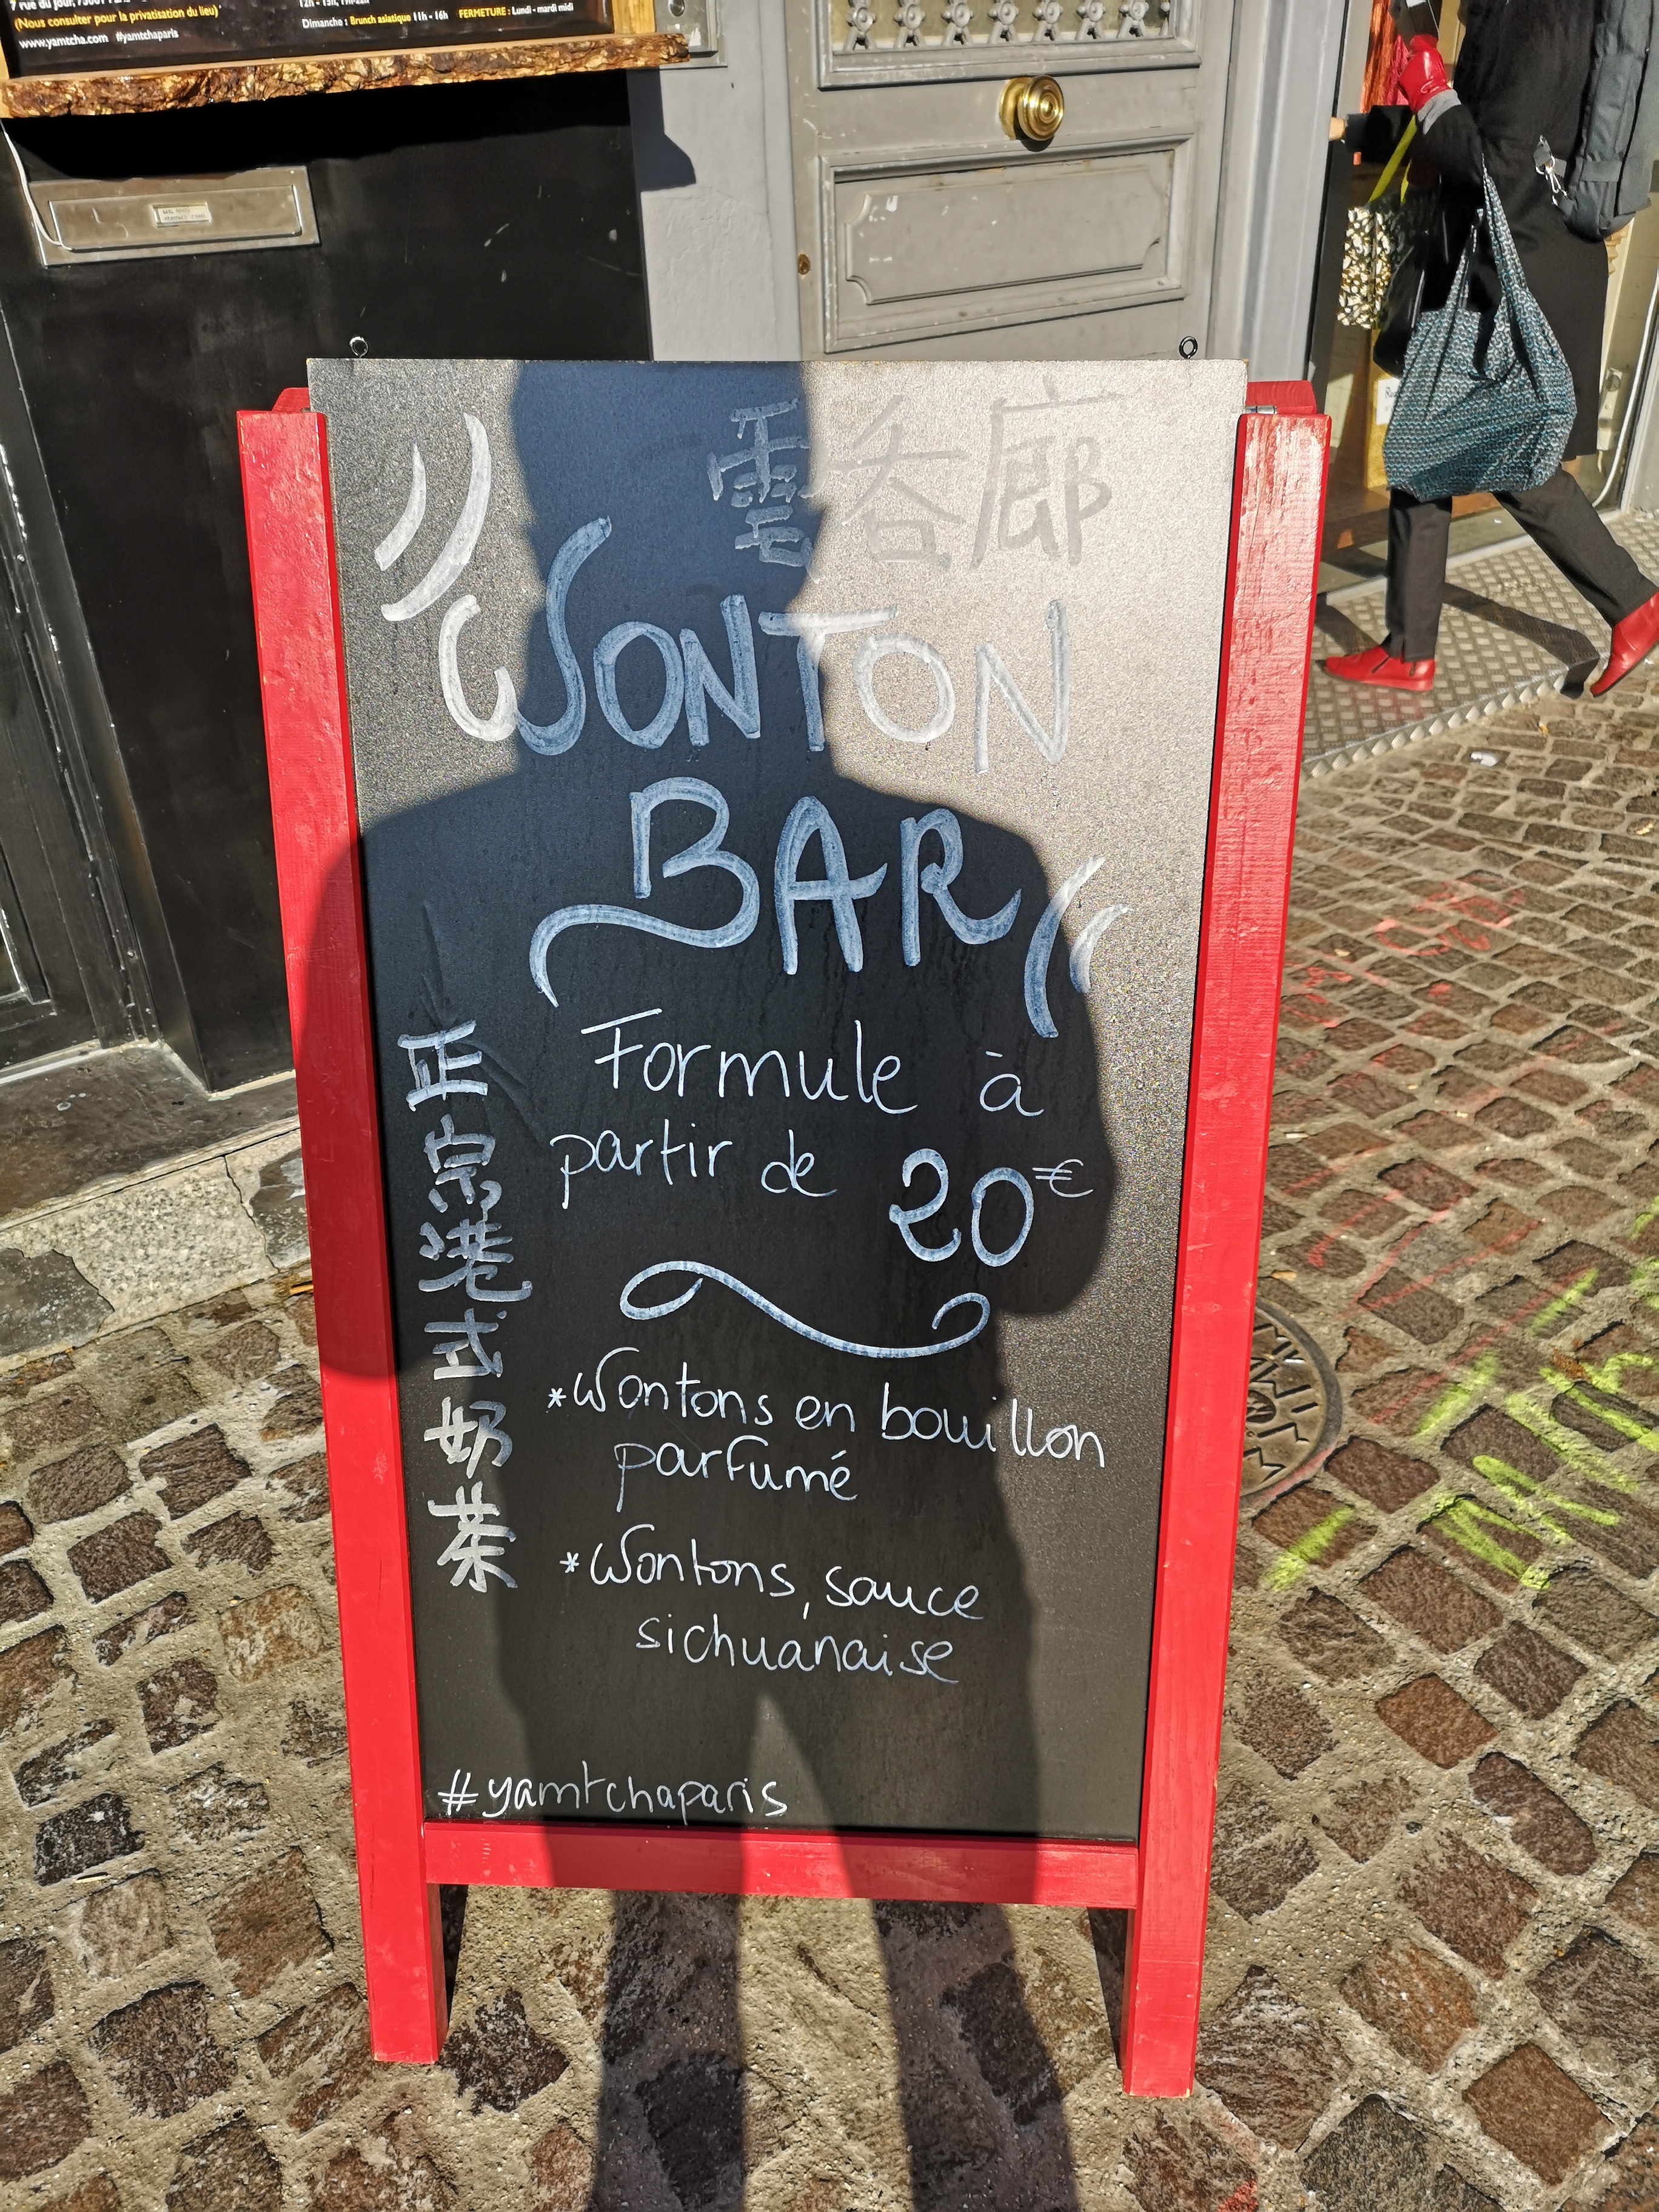 7 rue du jour, 75001
(Nous consulter pour la privatisation du lieu)
www.yamtcha.com #yamtchaparis
Dimanche : Brunch asiatique 11h - 16h FERMETURE : Lundi - mardi midi
雲呑廊
WONTON
BAR
Formule à
partir de 20€
正宗港式奶茶
*Wontons en bouillon
parfumé
*Wontons, sauce
sichuanaise
#yamtchaparis